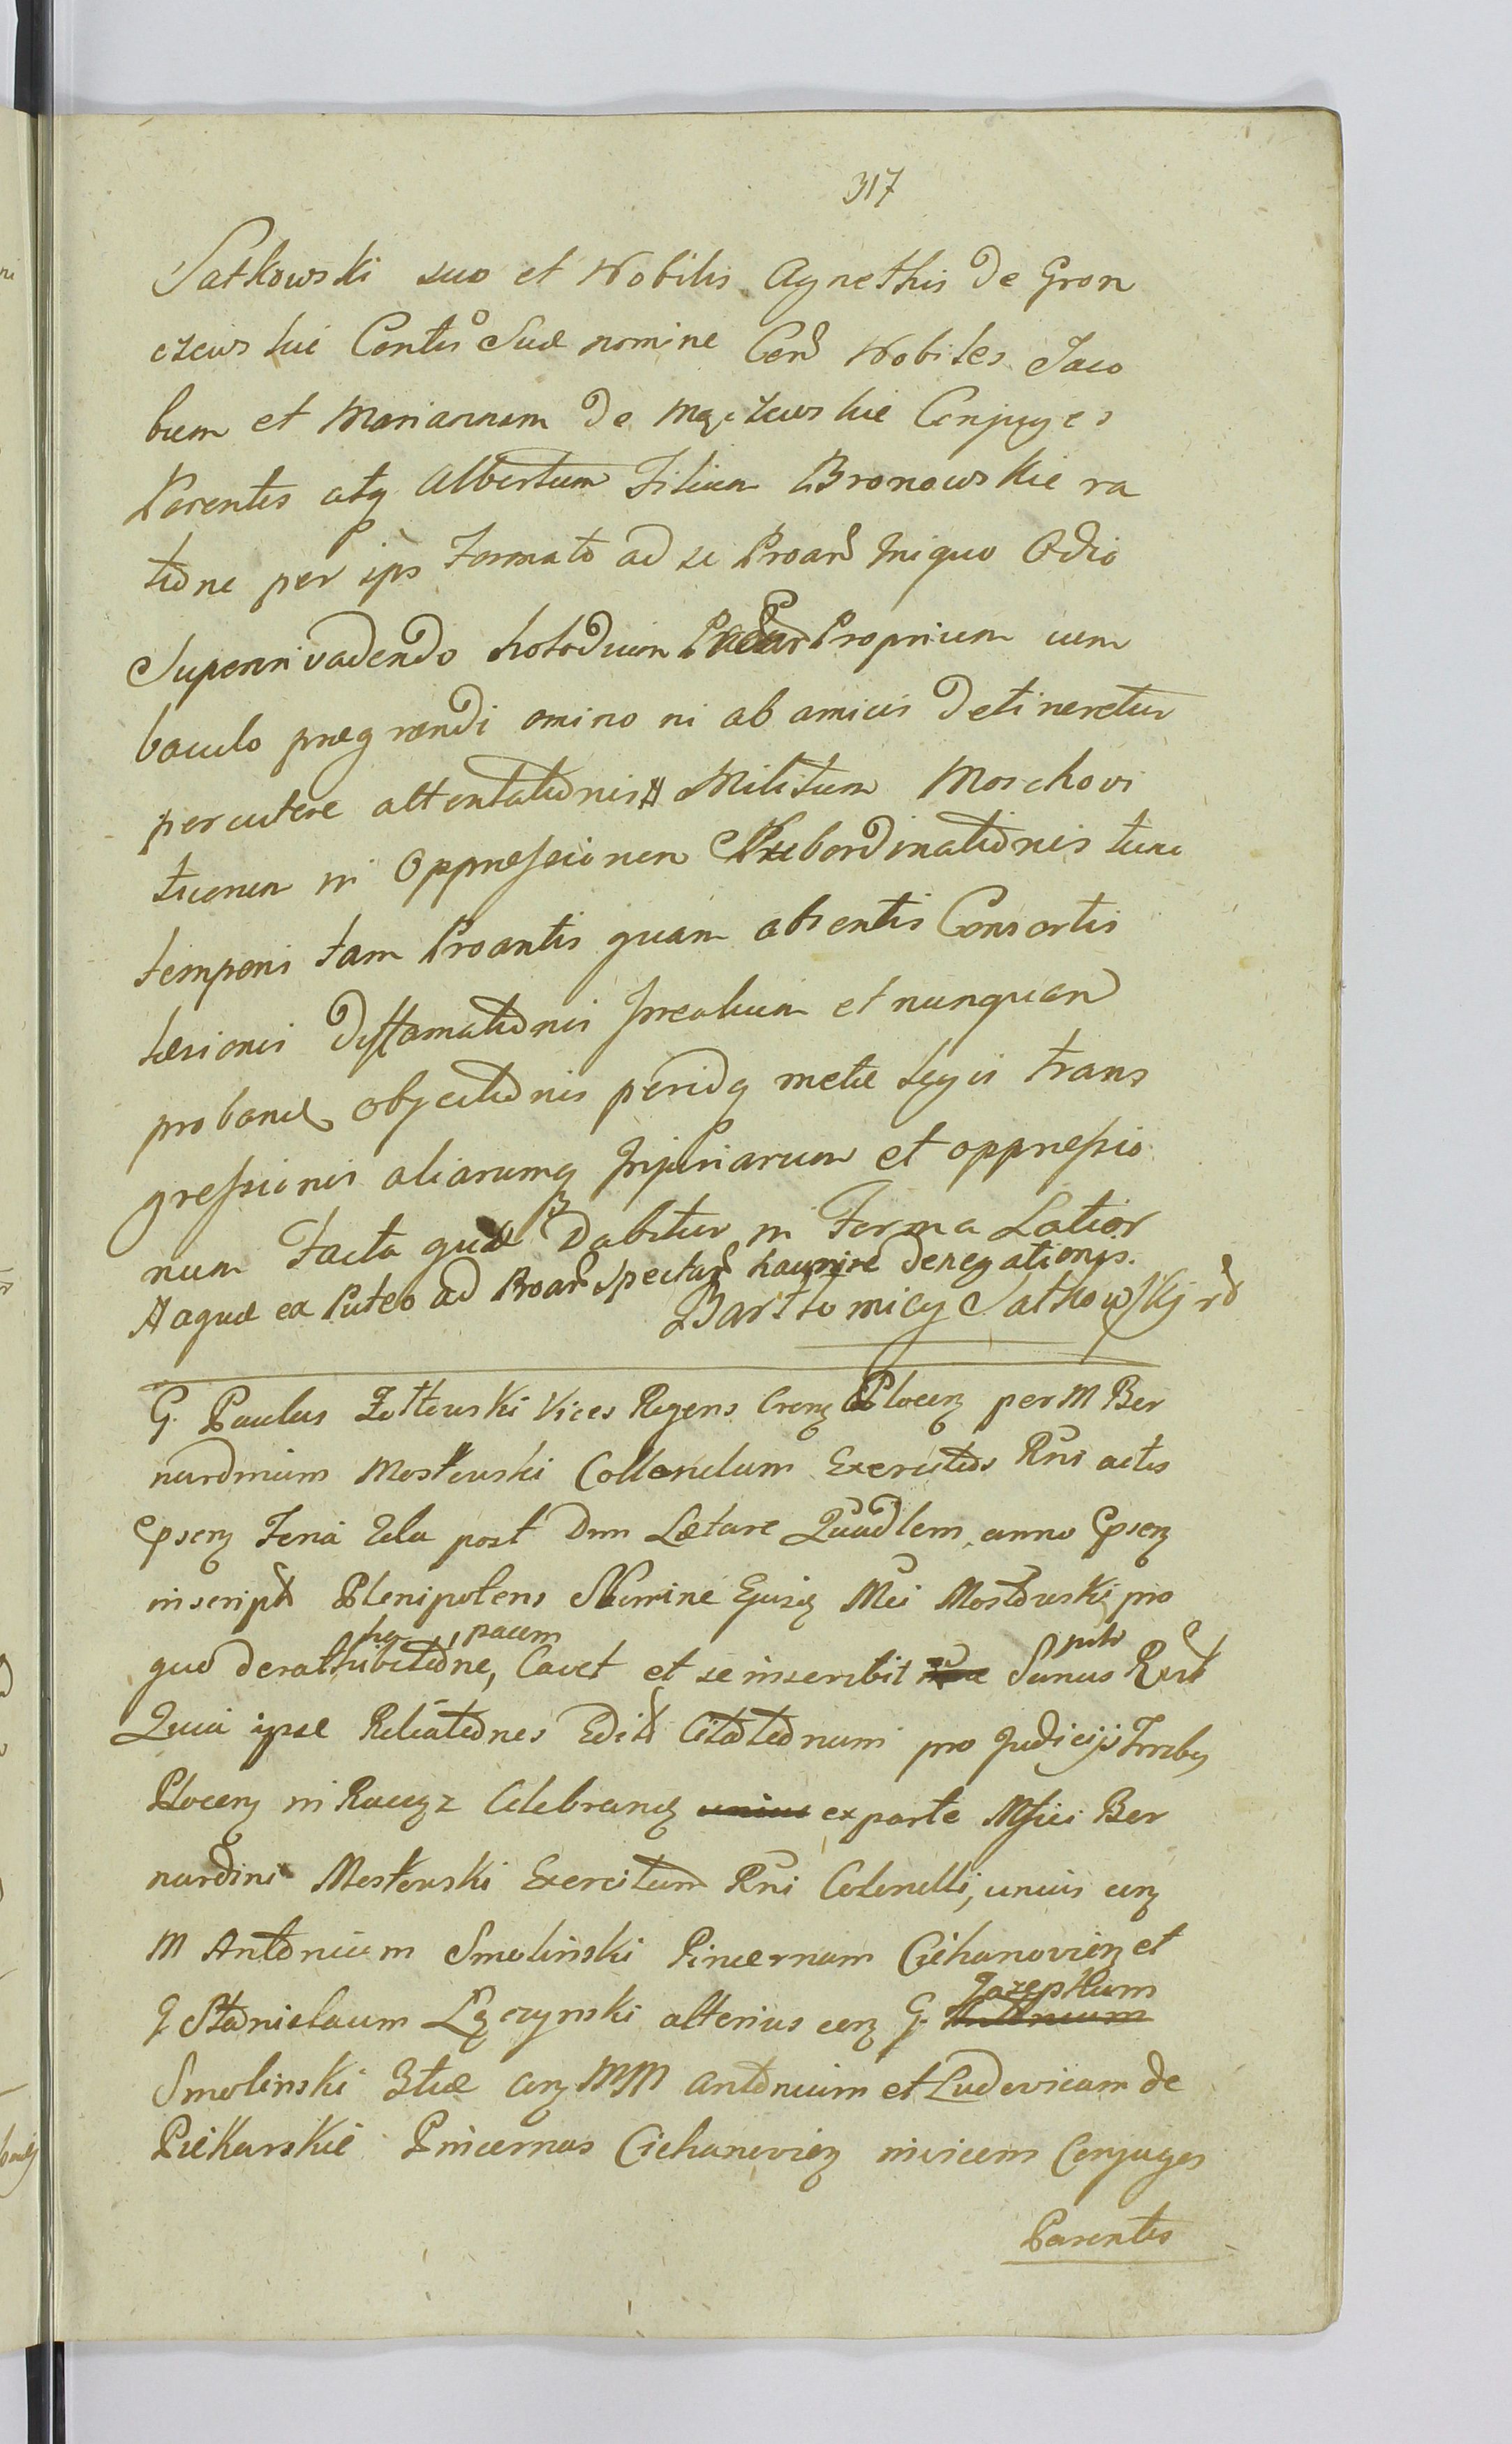 317
Satkowski suo et Nobilis Agnethis de Gron
czewskie Contis Suæ nomine Cen Nobiles Jaco
bum et Mariannam de Conjuges
Parentes atq Albertum Filium Bronowskie ra
tione per ips Formato ad se Proan Iniquo Odio
Superinvadendo Proprium cum
baculo prægrandi omino ni ab amicis detineretur
percutere attentationis # Militum Moschovi
ticorum in Oppressionem Subordinationis tunc
temporis tam Proantis quam absentis Consortis
læsionis Diffamationis et nunquam
probandæ objectionis metæ legis trans
gressionis aliarumq Injuriarum et oppressio
num facta quæ Dabitur in Forma Latior
# aquæ ex Puteo ad Proan Spectan haurire denegationis.
Barthomiey Satkowskj
G. Paulus Zołtowski Vices Regens Crenz Plocenz per M Ber
nardinum Mostowski Collonelum Exercitus Rni actis
epsenz Feria 2da post Dnm Lætare Quadlem anno Epsenz
inscript Plenipotens Numine Ejusd Mci Mostowski pro
quo de rathibitione, Cavet et se inscribit Sanus
pacem
Quia ipse Relationes Edit Citationum pro Judicijs Trrlbus
Plocenz in Raciąz Celebrand ex parte Mfici Ber
nardini Mostowski Exercitum Rni Colonelli, unius cenz
M Antonium Smolinski Pincernam Ciehanovienz et
G Stanislaum Lączynski alterius cenz G. Antonium
Jozephum
Smolinski 3tiæ cenz MM Antonium et Ludovicam de
Piekarskie Pincernas Ciehanovienz invicem Conjuges
Parentes